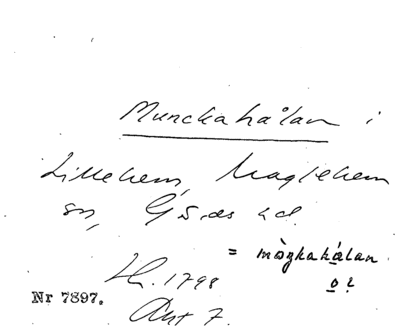 Munckahålan i
Lillehem, Maglehem
sn, Gärds hd.
= måŋkahålan
Hr. 1798
Nr 7897.
Akt 7.